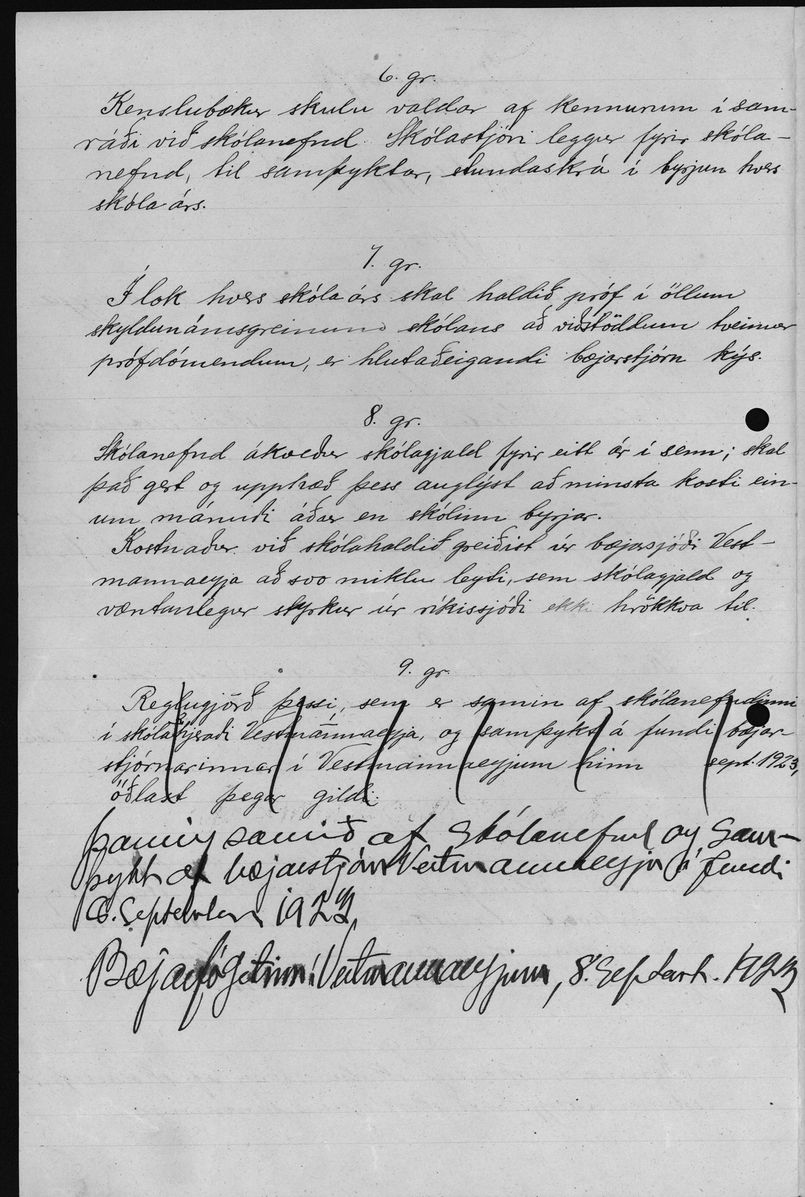 6. gr.
Kenslubækur skulu valdar af kennurum í sam-
ráði við skólanefnd. Skólastjóri leggur fyrir skóla-
nefnd, til samþyktar, stundaskrá í byrjun hvers
skólaárs.
7. gr.
Í lok hvers skólaárs skal haldið próf í öllum
skyldunámsgreinum skólans að viðstöddum tveimur
prófdómendum, er hlutaðeigandi bæjarstjórn kýs.
8. gr.
Skólanefnd ákveður skólagjald fyrir eitt ár í senn; skal
það gert og upphæð þess auglýst að minsta kosti ein-
um mánuði áður en skólinn byrjar.
Kostnaður við skólahaldið greiðist úr bæjarsjóði Vest-
mannaeyja að svo miklu leyti, sem skólagjald og
væntanlegur styrkur úr ríkissjóði ekki hrökkva til.
9. gr.
Reglugjörð þessi, sem er samin af skólanefndinni
í skólahjeraði Vestmannaeyja, og samþykt á fundi bæjar-
stjórnarinnar í Vestmannaeyjum hinn sept. 1923,
öðlast þegar gildi.
Þannig samið af skólanefnd og sam-
þykt af bæjarstjórn Vestmannaeyja á fundi
6. September 1923.
Bæjarfógetinn í Vestmannaeyjum, 8. Septbr. 1923